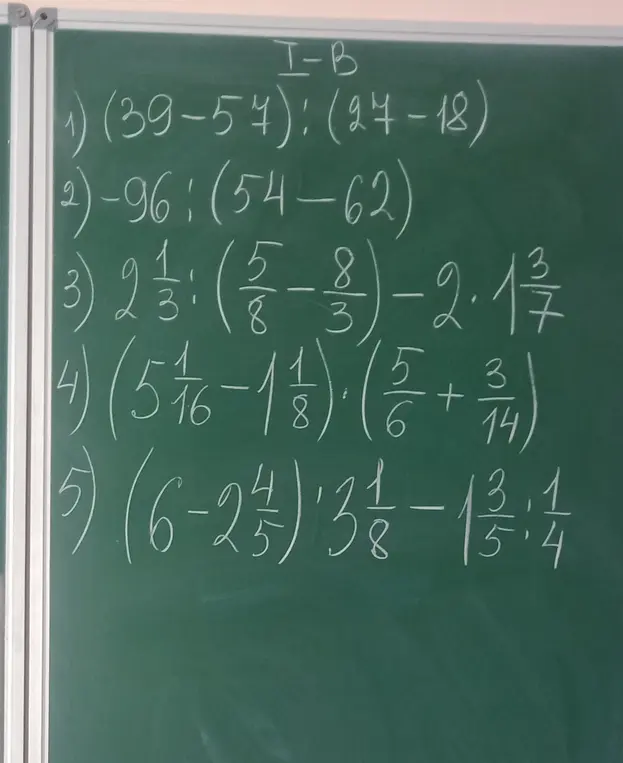 I-B
1) (39-57):(27-18)
2) -96:(54-62)
3) 2 1/3:(5/8-8/3)-2·1 3/7
4) (5 1/16-1 1/8)·(5/6+3/14)
5) (6-2 4/5)·3 1/8-1 3/5:1/4